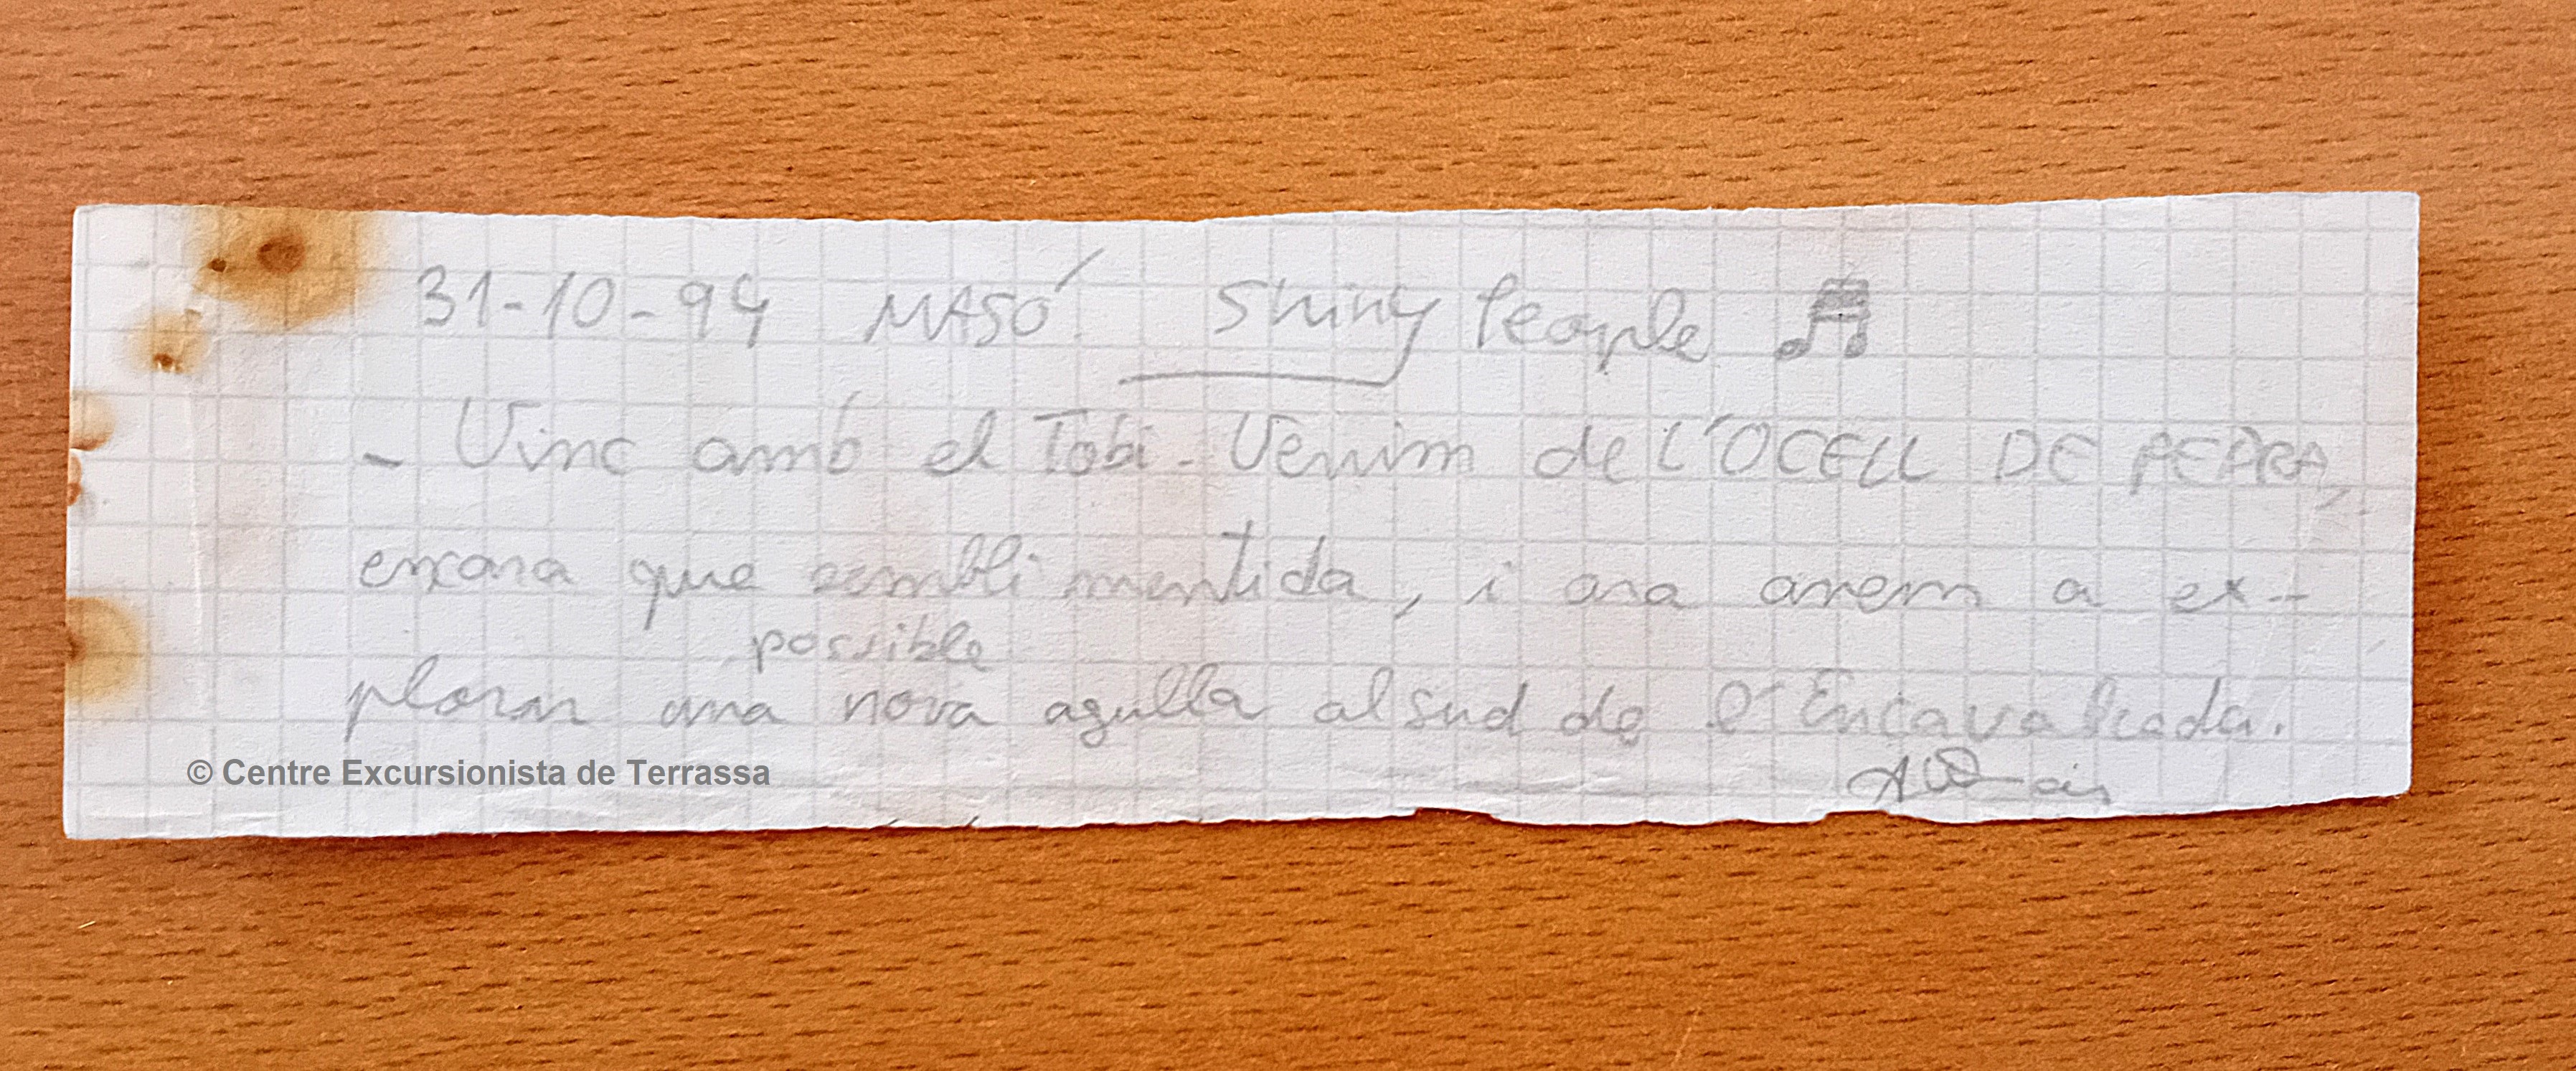 31-10-94 MASÓ. Shiny People
- Vinc amb el Tobi - Venim de L'OCELL DE PEDRA,
encara que sembli mentida, i ara anem a ex-
possible
plorar una nova agulla al sud de l'Encavalcada.
© Centre Excursionista de Terrassa